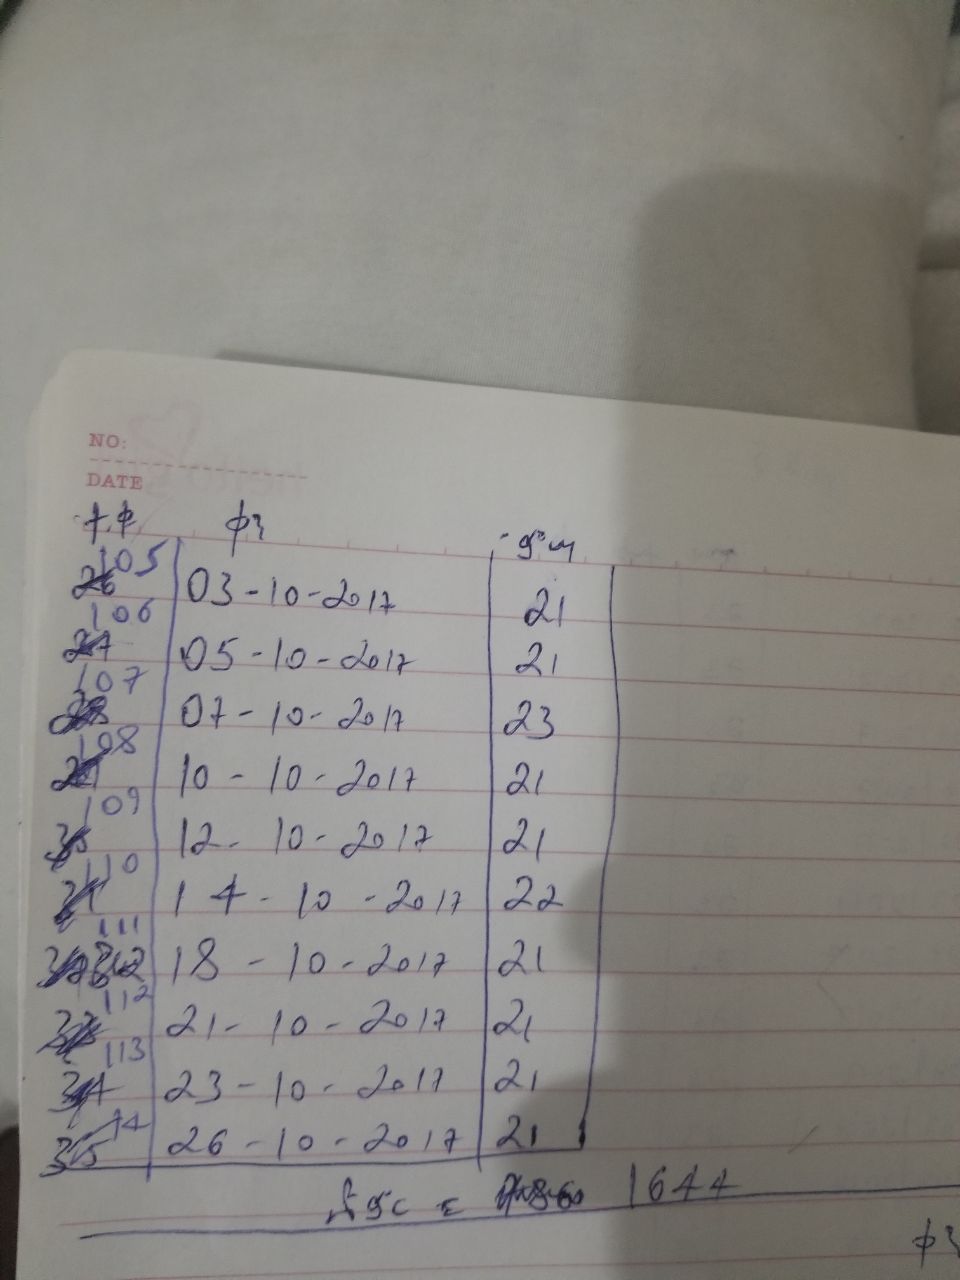 NO:
DATE
ተ.ቁ ቀን
105 03-10-2017 21
106 05-10-2017 21
107 07-10-2017 23
108 10-10-2017 21
109 12-10-2017 21
110 14-10-2017 22
111 18-10-2017 21
112 21-10-2017 21
113 23-10-2017 21
14 26-10-2017 21
1644
ቀን